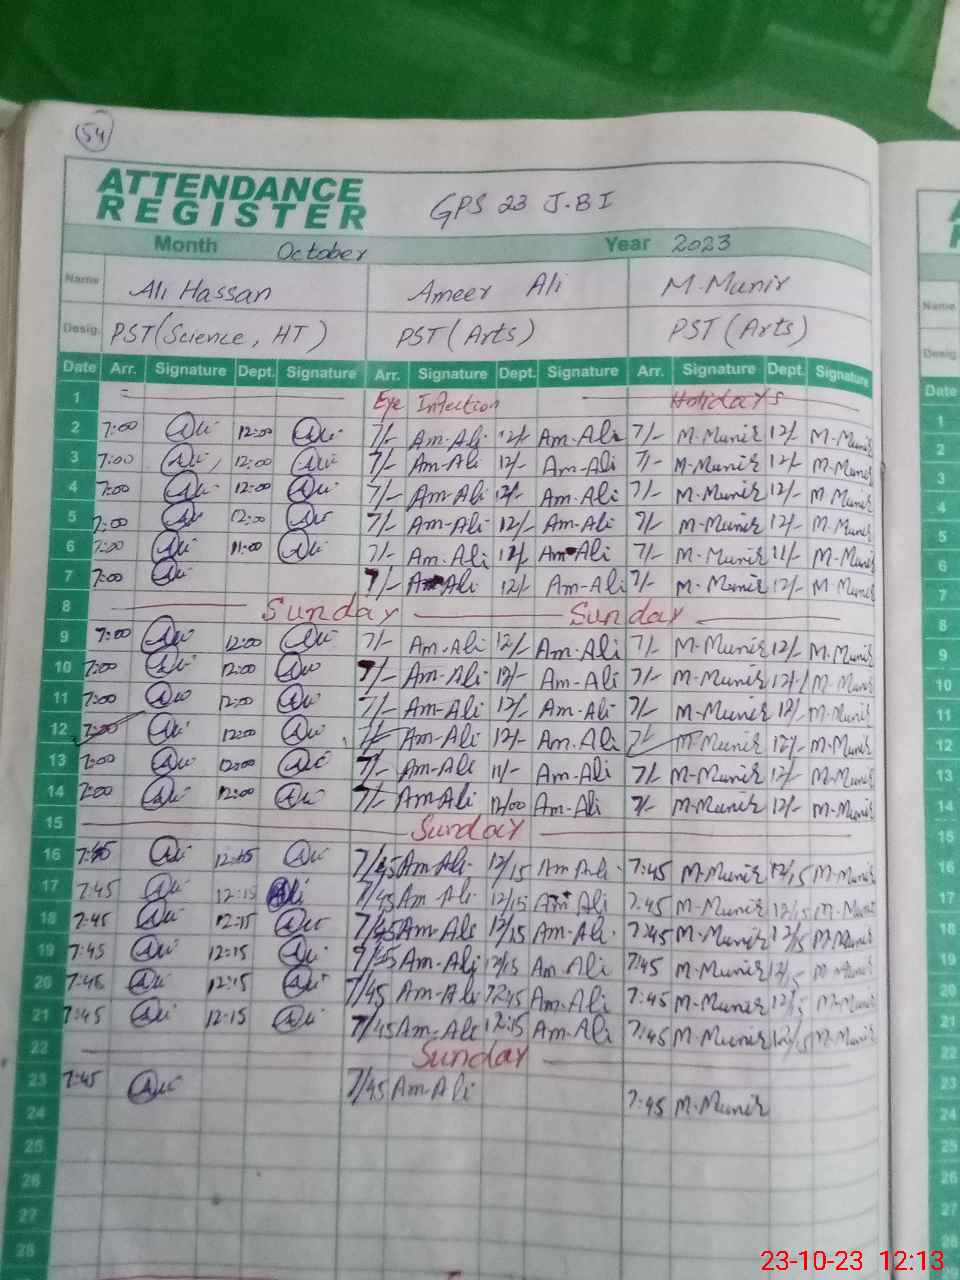 54
ATTENDANCE
REGISTER GPS 23 J.BI
Month October Year 2023
Name Ali Hassan Ameer Ali M.Munir
Desig. PST(Science, HT) PST (Arts) PST (Arts)
Date Arr. Signature Dept. Signature Arr. Signature Dept. Signature Arr. Signature Dept. Signature
1 Eye Infection Holidays
2 7:00 12:00 7/- Am-Ali 12/- Am-Ali 7/- M-Munir 12/- M-Munir
3 7:00 12:00 7/- Am-Ali 12/- Am-Ali 7/- M-Munir 12/- M-Munir
4 7:00 12:00 7/- Am-Ali 12/- Am-Ali 7/- M-Munir 12/- M-Munir
5 7:00 12:00 7/- Am-Ali 12/- Am-Ali 7/- M-Munir 12/- M-Munir
6 7:00 11:00 7/- Am-Ali Am-Ali 7/- M-Munir M-Munir
7 7:00 7/- Am-Ali 12/- Am-Ali 7/- M-Munir 12/- M-Munir
8 Sunday Sunday
9 7:00 12:00 7/- Am-Ali 12/- Am-Ali 7/- M-Munir 12/- M-Munir
10 7:00 12:00 7/- Am-Ali 12/- Am-Ali 7/- M-Munir 12/- M-Munir
11 7:00 12:00 7/- Am-Ali 12/- Am-Ali 7/- M-Munir 12/- M-Munir
12 7:00 12:00 7/- Am-Ali 12/- Am-Ali 7/- M-Munir 12/- M-Munir
13 7:00 12:00 7/- Am-Ali 11/- Am-Ali 7/- M-Munir 12/- M-Munir
14 7:00 12:00 7/- Am-Ali 12/00 Am-Ali 7/- M-Munir 12/- M-Munir
15 Sunday
16 7:45 12:15 7/45 Am-Ali 12/15 Am Ali 7:45 M-Munir 12/15 M-Munir
17 7:45 12:15 Ali 7/45 Am-Ali 12/15 Am Ali 7:45 M-Munir 12/15 M-Munir
18 7:45 12:15 7/45 Am-Ali 12/15 Am-Ali 7:45 M-Munir 12/15 M-Munir
19 7:45 12:15 Am-Ali 12/15 Am Ali 7:45 M-Munir 12/15 M-Munir
20 7:45 12:15 7/45 Am-Ali Am-Ali 7:45 M-Munir 12/15 M-Munir
21 7:45 12:15 7/45 Am-Ali 12:15 Am-Ali 7:45 M-Munir 12/15 M-Munir
22 Sunday
23 7:45 7/45 Am-Ali 7:45 M-Munir
24
25
26
27
28
Name
Desig
Date
1
2
3
4
5
6
7
8
9
10
11
12
13
14
15
16
17
18
19
20
21
22
23
24
25
26
27
28
23-10-23 12:13